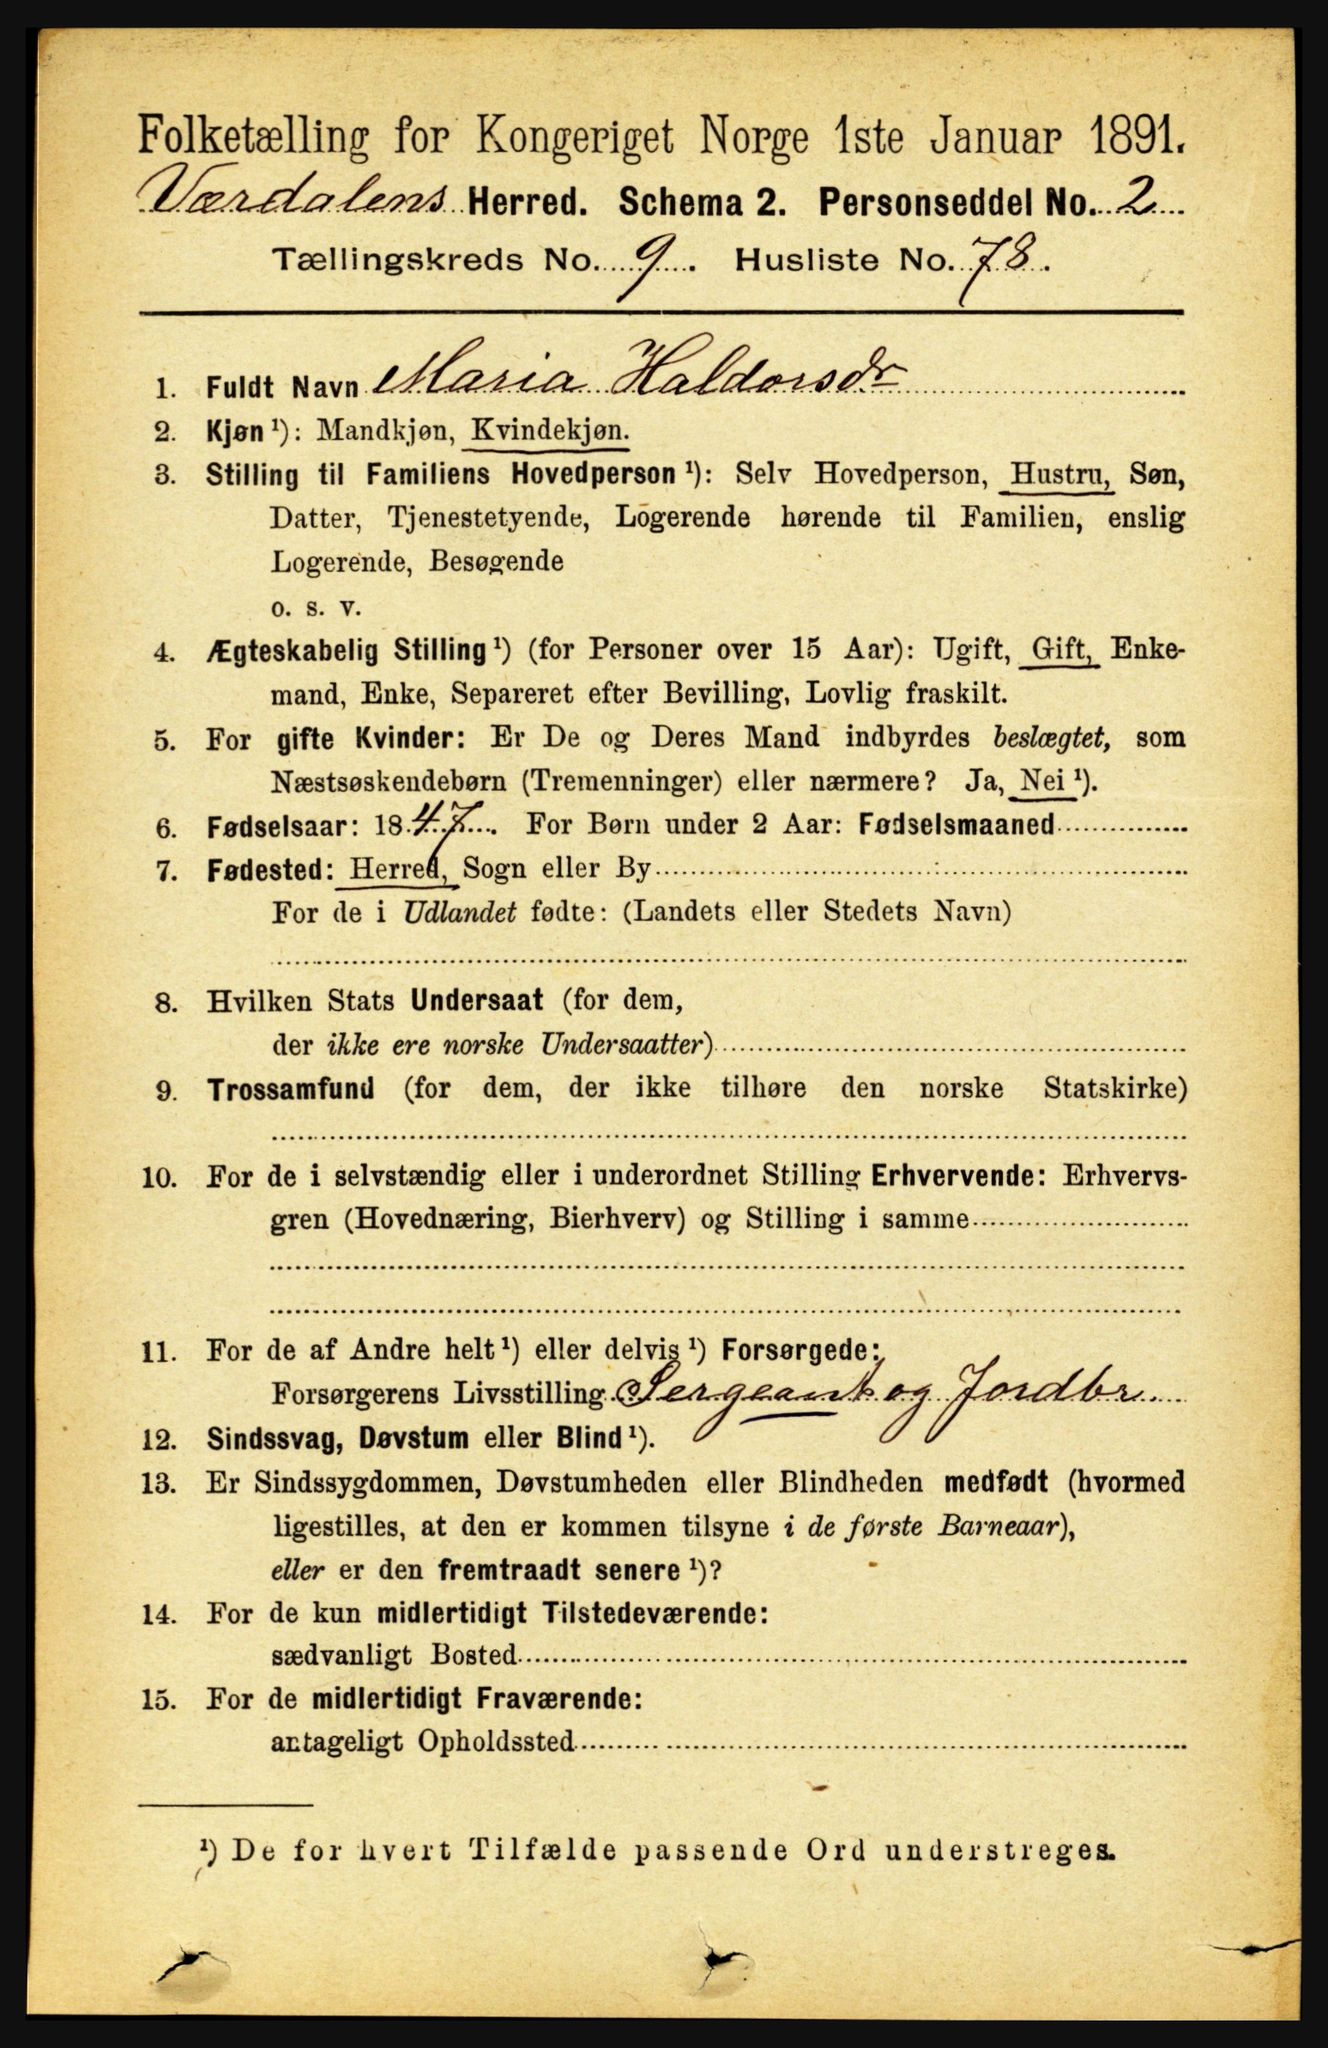 Folketælling for Kongeriget Norge 1ste Januar 1891.
Værdalens Herred. Schema 2. Personseddel No. 2
Tællingskreds No. 9. Husliste No. 78.
1. Fuldt Navn Maria Haldorsdr
2. Kjøn ¹): Mandkjøn, Kvindekjøn.
3. Stilling til Familiens Hovedperson ¹): Selv Hovedperson, Hustru, Søn,
Datter, Tjenestetyende, Logerende hørende til Familien, enslig
Logerende, Besøgende
o. s. v.
4. Ægteskabelig Stilling ¹) (for Personer over 15 Aar): Ugift, Gift, Enke-
mand, Enke, Separeret efter Bevilling, Lovlig fraskilt.
5. For gifte Kvinder: Er De og Deres Mand indbyrdes beslægtet, som
Næstsøskendebørn (Tremenninger) eller nærmere? Ja, Nei ¹).
6. Fødselsaar: 1847. For Børn under 2 Aar: Fødselsmaaned
7. Fødested: Herred, Sogn eller By
For de i Udlandet fødte: (Landets eller Stedets Navn)
8. Hvilken Stats Undersaat (for dem,
der ikke ere norske Undersaatter)
9. Trossamfund (for dem, der ikke tilhøre den norske Statskirke)
10. For de i selvstændig eller i underordnet Stilling Erhvervende: Erhvervs-
gren (Hovednæring, Bierhverv) og Stilling i samme
11. For de af Andre helt ¹) eller delvis ¹) Forsørgede:
Forsørgerens Livsstilling Sergeant og Jordbr
12. Sindssvag, Døvstum eller Blind ¹).
13. Er Sindssygdommen, Døvstumheden eller Blindheden medfødt (hvormed
ligestilles, at den er kommen tilsyne i de første Barneaar),
eller er den fremtraadt senere ¹)?
14. For de kun midlertidigt Tilstedeværende:
sædvanligt Bosted
15. For de midlertidigt Fraværende:
antageligt Opholdssted
¹) De for hvert Tilfælde passende Ord understreges.